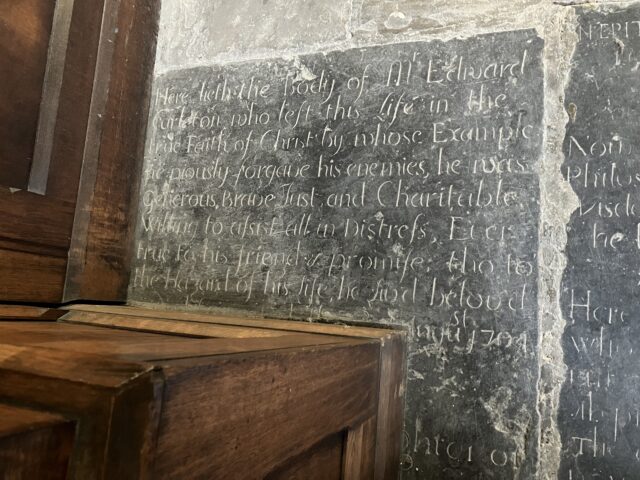 Here lieth the Body of Mr Edward
Carleton who left this Life in the
true Faith of Christ by whose Example
he piously forgave his enemies, he was
Generous, Brave Just, and Charitable,
Willing to asist all in Distress, Ever
true to his friend & promise, tho to
the Hazard of his life, he liv'd belov'd
August 1704
ghter of
Non
Philos
Wisdo
he
Here
who